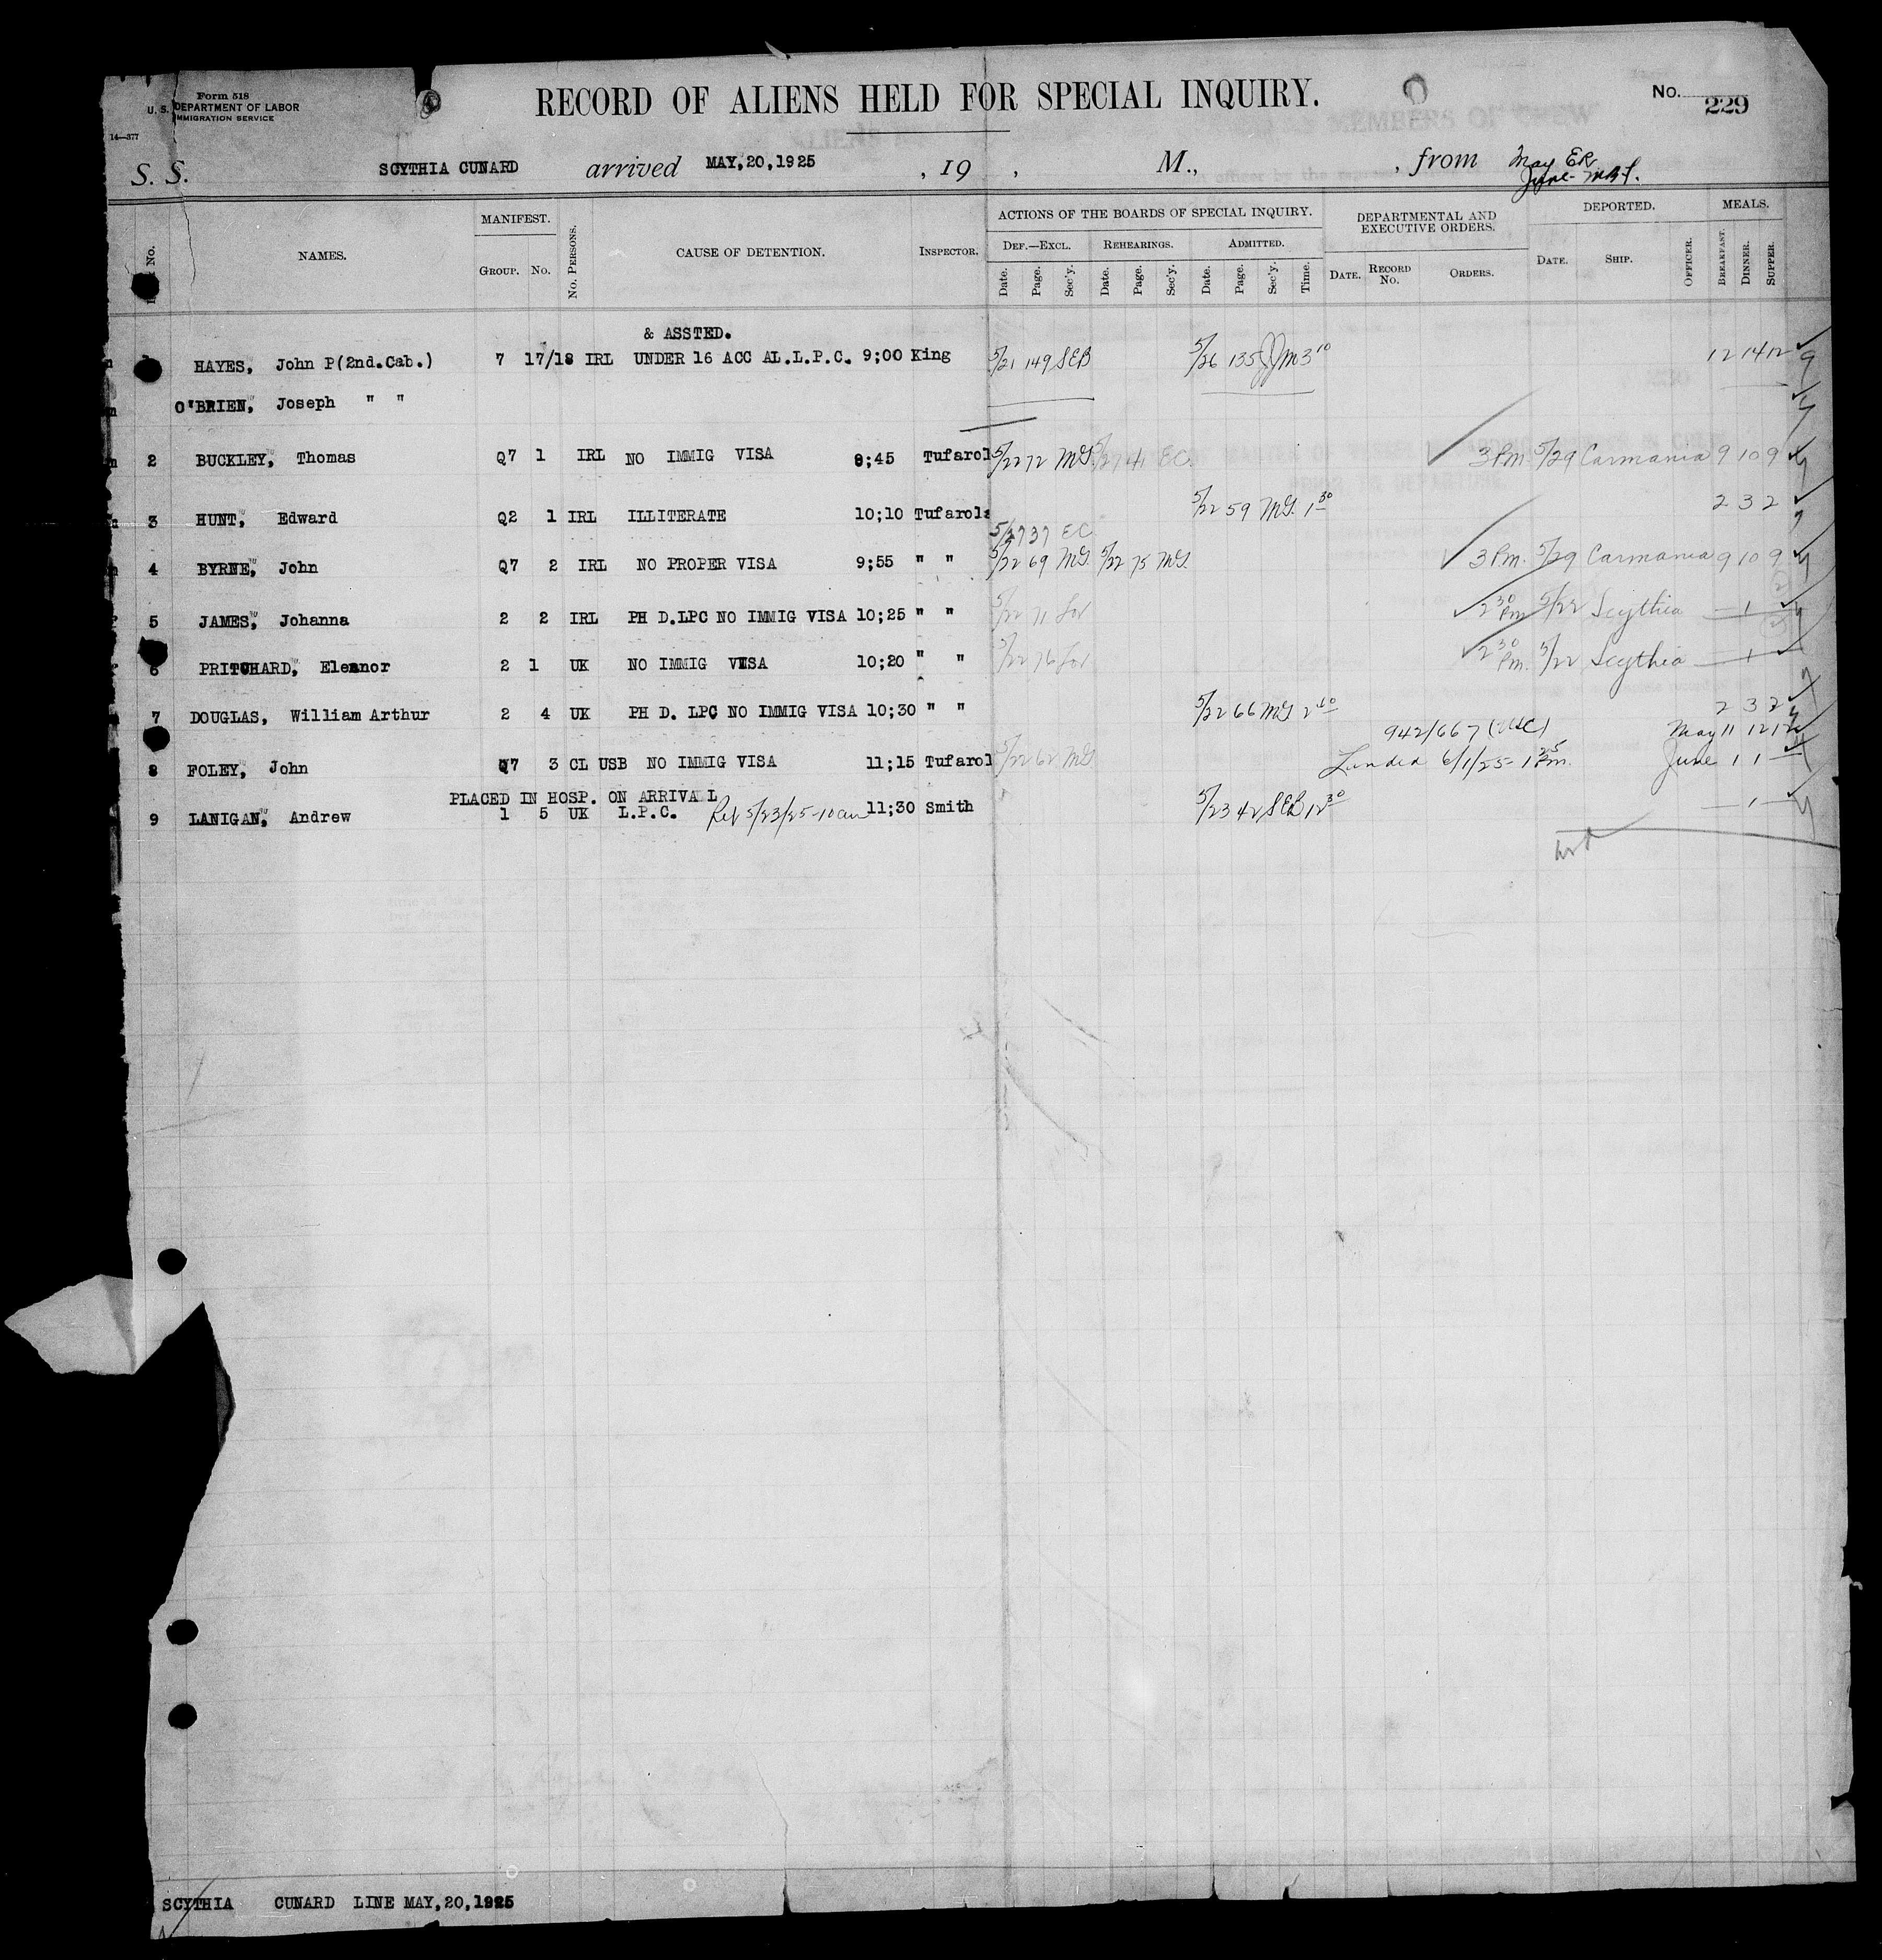 Form 518
U. S. DEPARTMENT OF LABOR
IMMIGRATION SERVICE
14—377
RECORD OF ALIENS HELD FOR SPECIAL INQUIRY.
No. 229
S. S. SCYTHIA CUNARD arrived MAY,20,1925 , 19 , M., , from May ER
June
No. NAMES. MANIFEST. GROUP. No. No. PERSONS. CAUSE OF DETENTION. INSPECTOR. ACTIONS OF THE BOARDS OF SPECIAL INQUIRY. DEF.—EXCL. REHEARINGS. ADMITTED. DEPARTMENTAL AND EXECUTIVE ORDERS. DEPORTED. MEALS.
Date. Page. Sec'y. Date. Page. Sec'y. Date. Page. Sec'y. Time. DATE. RECORD No. ORDERS. DATE. SHIP. OFFICER. BREAKFAST. DINNER. SUPPER.
& ASSTED.
HAYES, John P(2nd.Cab.) 7 17/18 IRL UNDER 16 ACC AL.L.P.C. 9;00 King 5/21 149 SEB 5/26 135 JJM 3 10 12 14 12
O'BRIEN, Joseph " "
2 BUCKLEY, Thomas Q7 1 IRL NO IMMIG VISA 8;45 Tufarol 5/22 72 MG 5/27 41 EC 3 Pm. 5/29 Carmania 9 10 9
3 HUNT, Edward Q2 1 IRL ILLITERATE 10;10 Tufarola 5/22 59 MG. 1 30 2 3 2
5/27 37 EC
4 BYRNE, John Q7 2 IRL NO PROPER VISA 9;55 " " 5/22 69 MG. 5/22 75 MG. 3 Pm. 5/29 Carmania 9 10 9
5 JAMES, Johanna 2 2 IRL PH D.LPC NO IMMIG VISA 10;25 " " 5/22 71 2 30 Pm 5/22 Scythia — 1 —
6 PRITCHARD, Eleanor 2 1 UK NO IMMIG VISA 10;20 " " 5/22 76 2 30 Pm. 5/22 Scythia — 1 —
7 DOUGLAS, William Arthur 2 4 UK PH D. LPC NO IMMIG VISA 10;30 " " 5/22 66 MG 2 40 2 3 2
942/667 May 11 12 12
8 FOLEY, John Q7 3 CL USB NO IMMIG VISA 11;15 Tufarol 5/22 62 MG Landed 6/1/25 - 1 25 Pm. June 1 1 —
PLACED IN HOSP. ON ARRIVAL
9 LANIGAN, Andrew 1 5 UK L.P.C. Rel 5/23/25-10am 11;30 Smith 5/23 42 SEB 12 30 — 1 —
SCYTHIA CUNARD LINE MAY,20,1925